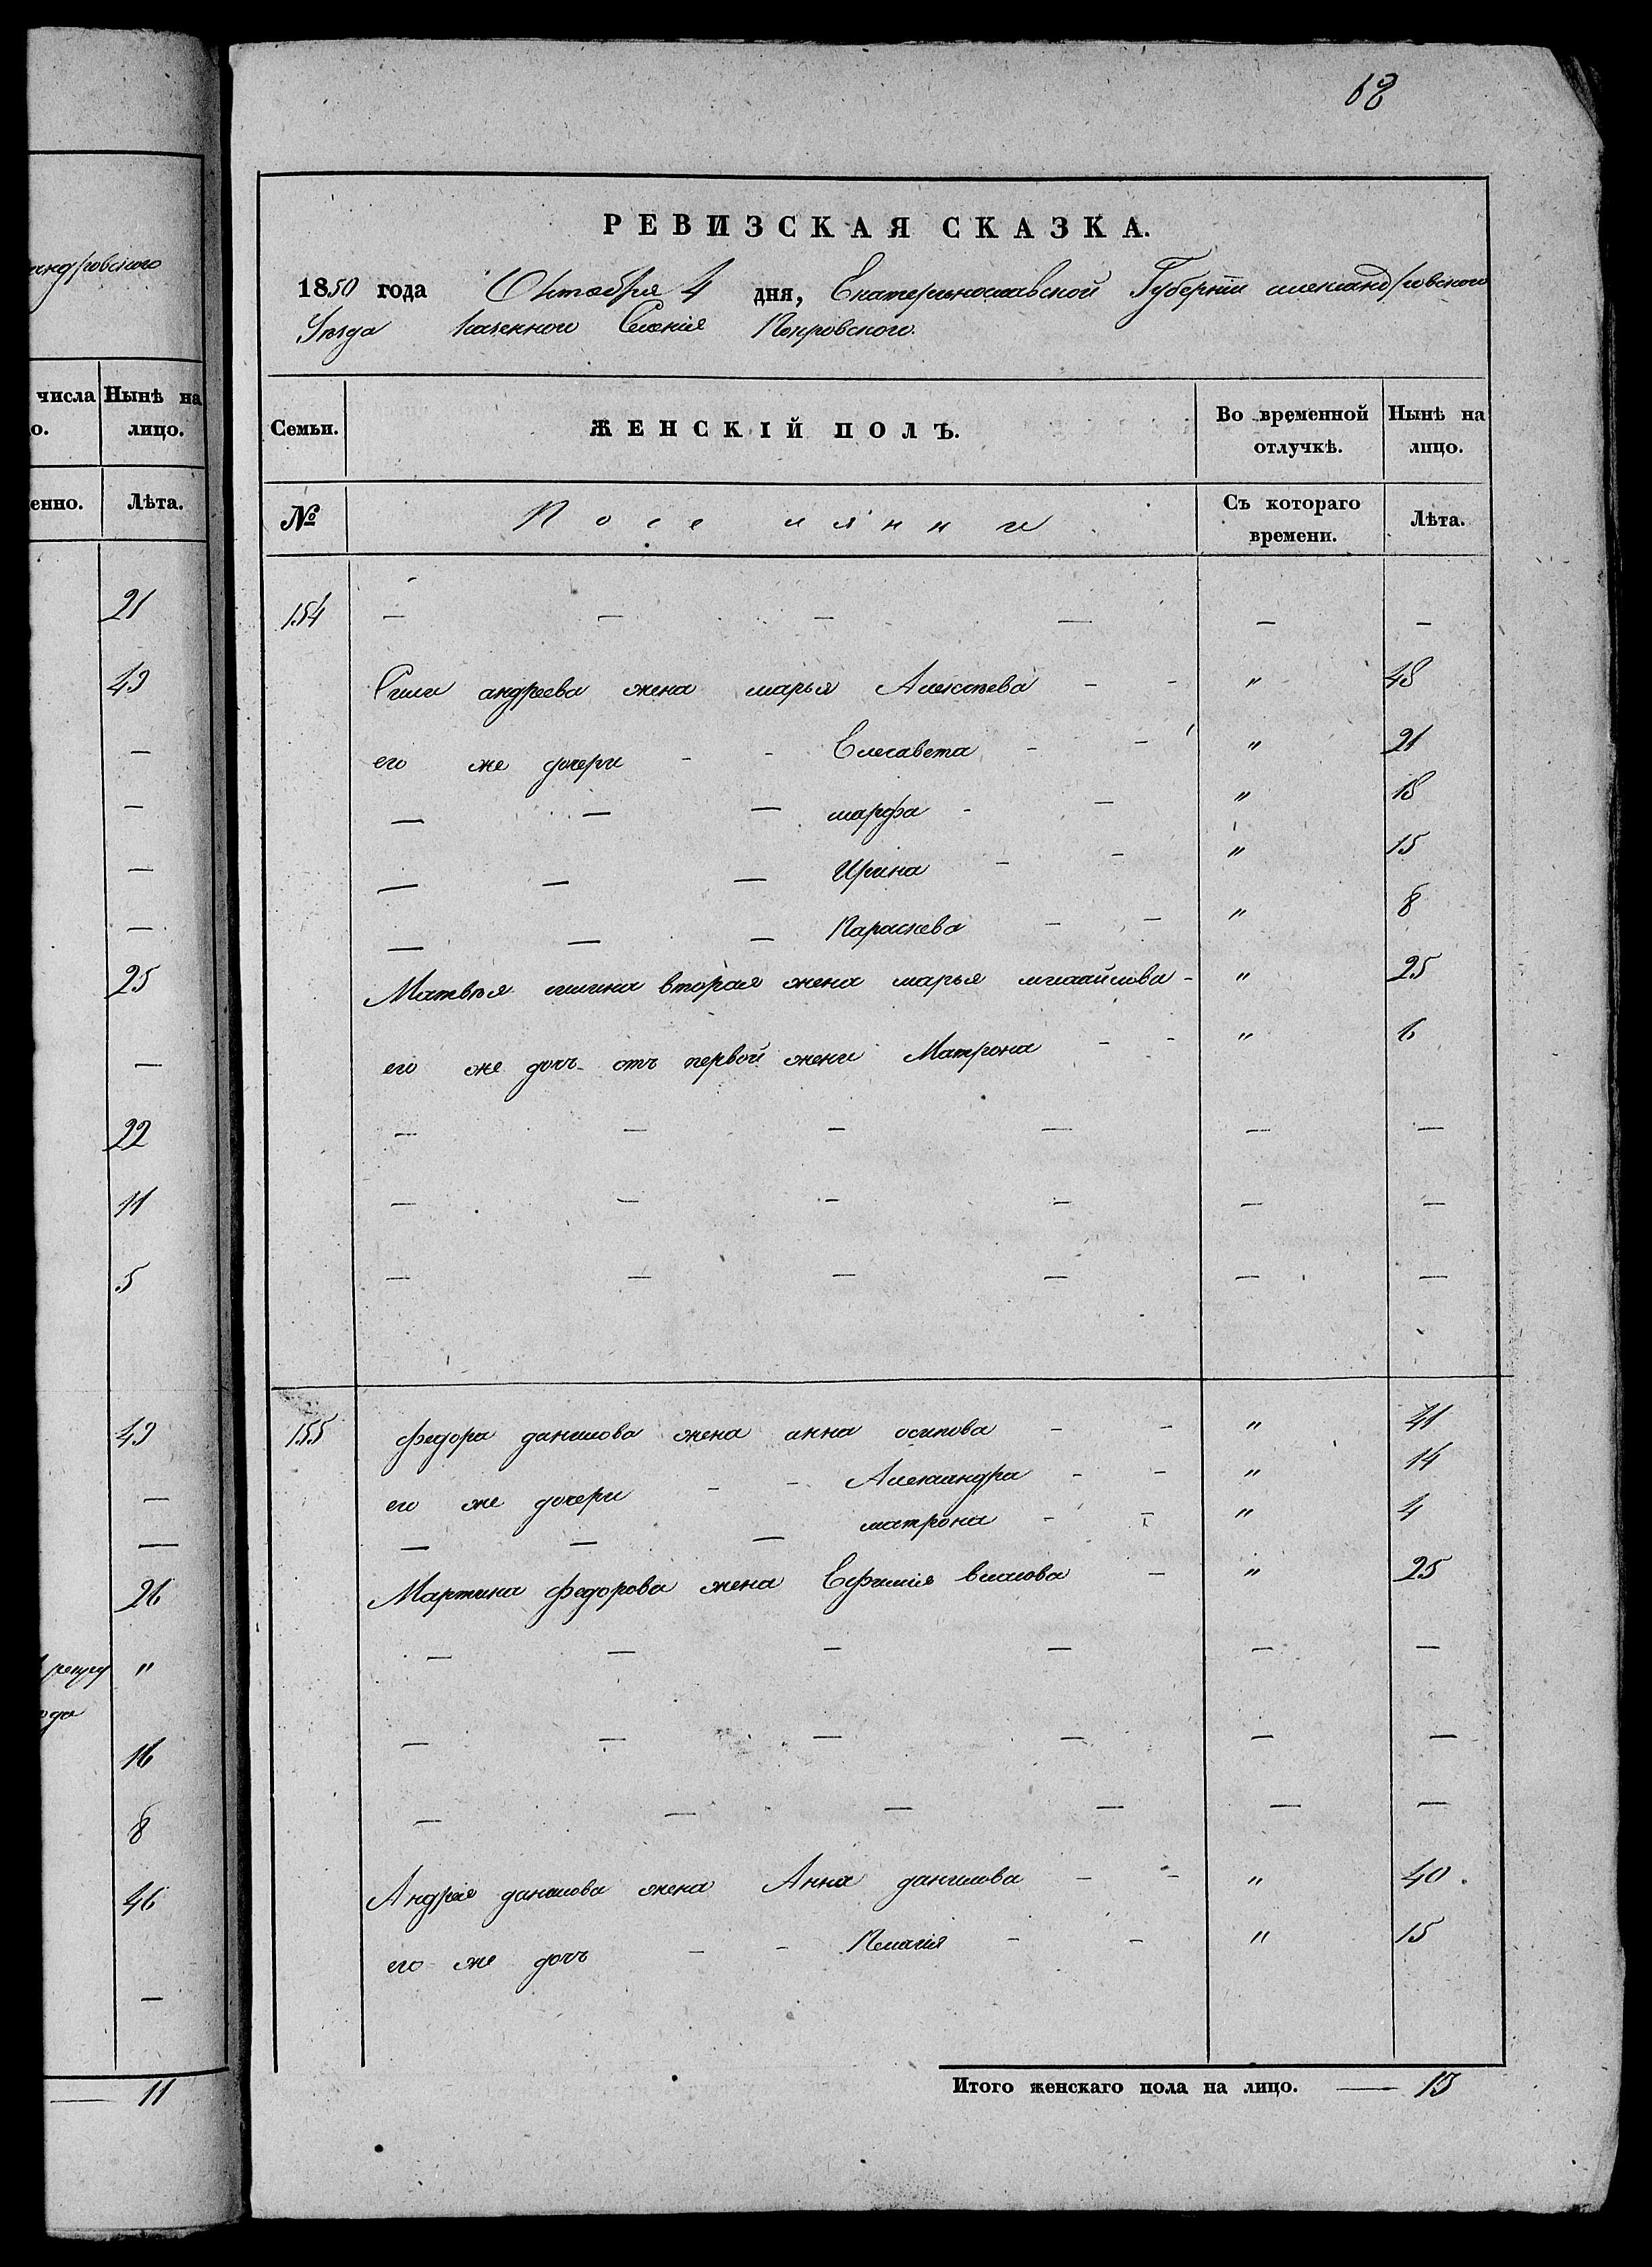 андровского
числа Нынѣ на
о. лицо.
енно. Лѣта.
21
49
—
—
—
—
25
—
22
11
5
49
—
—
26
"
ода
16
8
46
—
— 11
68
РЕВИЗСКАЯ СКАЗКА.
1850 года Октября 4 дня, Екатеринославской Губернiи александровского
Уѣзда казенного Селенiя Покровского.
Семьи. ЖЕНСКІЙ ПОЛЪ. Во временной отлучкѣ. Нынѣ на лицо.
№ Поселянки Съ котораго времени. Лѣта.
154 — — — — — —
андреева жена марья Алексѣева - - " 48
его же дочери - - Елисавета - - " 21
— — — марфа - — " 18
— — — Ирина - - " 15
— — — Параскева - - " 8
Матвѣя вторая жена марья михайлова - " 25
его же дочь отъ первой жени Матрона - - " 6
— — — — — —
— — — — — —
— — — — — —
155 федора данилова жена анна осипова - - " 41
его же дочери - - Александра - - " 14
— — — матрона - - " 4
Мартина федорова жена Ефимiя власова - " 25
— — — — — —
— — — — — —
— — — — — —
Андрея данилова жена Анна данилова - - " 40.
его же дочь - - Пелагiя - - " 15
Итого женскаго пола на лицо. — 13